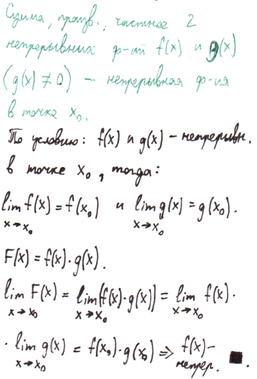 Сумма, произв., частное 2
непрерывных ф-ий f(x) и g(x)
(g(x) ≠ 0) – непрерывная ф-ия
в точке x₀.
По условию: f(x) и g(x) – непрерывн.
в точке x₀, тогда:
lim f(x) = f(x₀) и lim g(x) = g(x₀).
x→x₀ x→x₀
F(x) = f(x)·g(x).
lim F(x) = lim(f(x)·g(x)) = lim f(x)·
x→x₀ x→x₀ x→x₀
· lim g(x) = f(x₀)·g(x₀) => f(x) –
x→x₀ непрер. ■